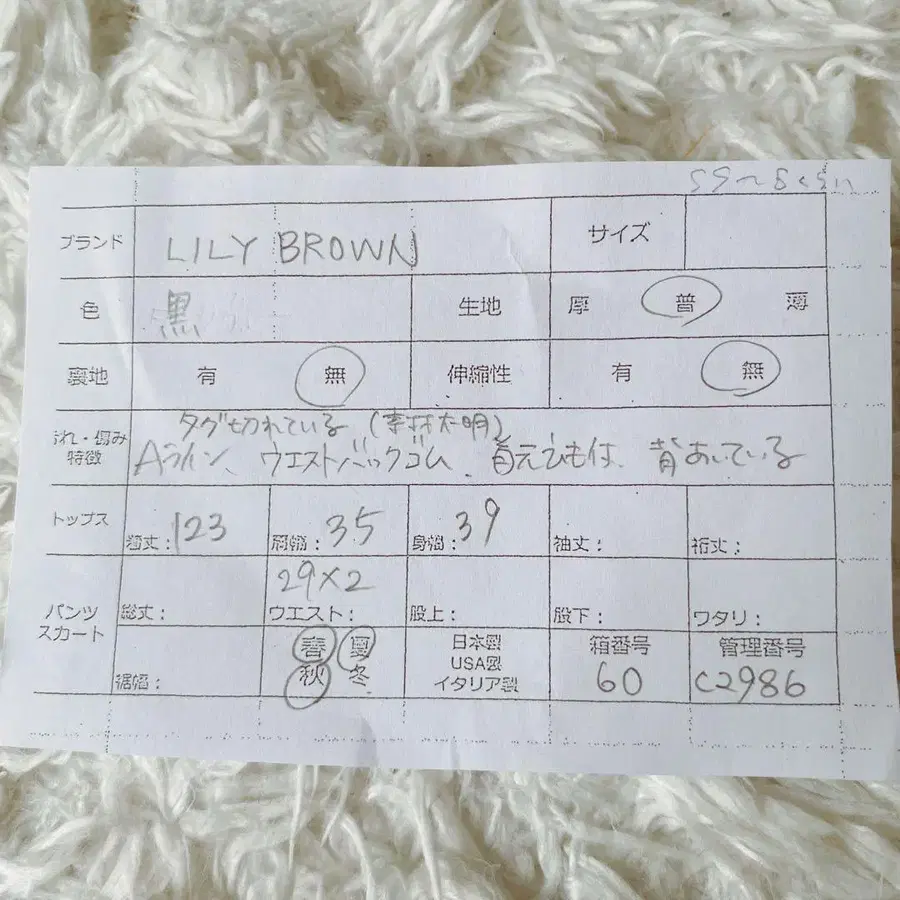 S9〜Sくらい
ブランド LILY BROWN サイズ
色 黒 生地 厚 普 薄
裏地 有 無 伸縮性 有 無
汚れ・傷み 特徴 タグ切れている (素材不明)
Aライン、ウエストバックゴム、首元ひも付、背あいている
トップス 着丈:123 肩幅:35 身幅:39 袖丈: 裄丈:
パンツ スカート 総丈: 29×2 ウエスト: 股上: 股下: ワタリ:
裾幅: 春 夏 秋 冬 日本製 USA製 イタリア製 箱番号 60 管理番号 C2986